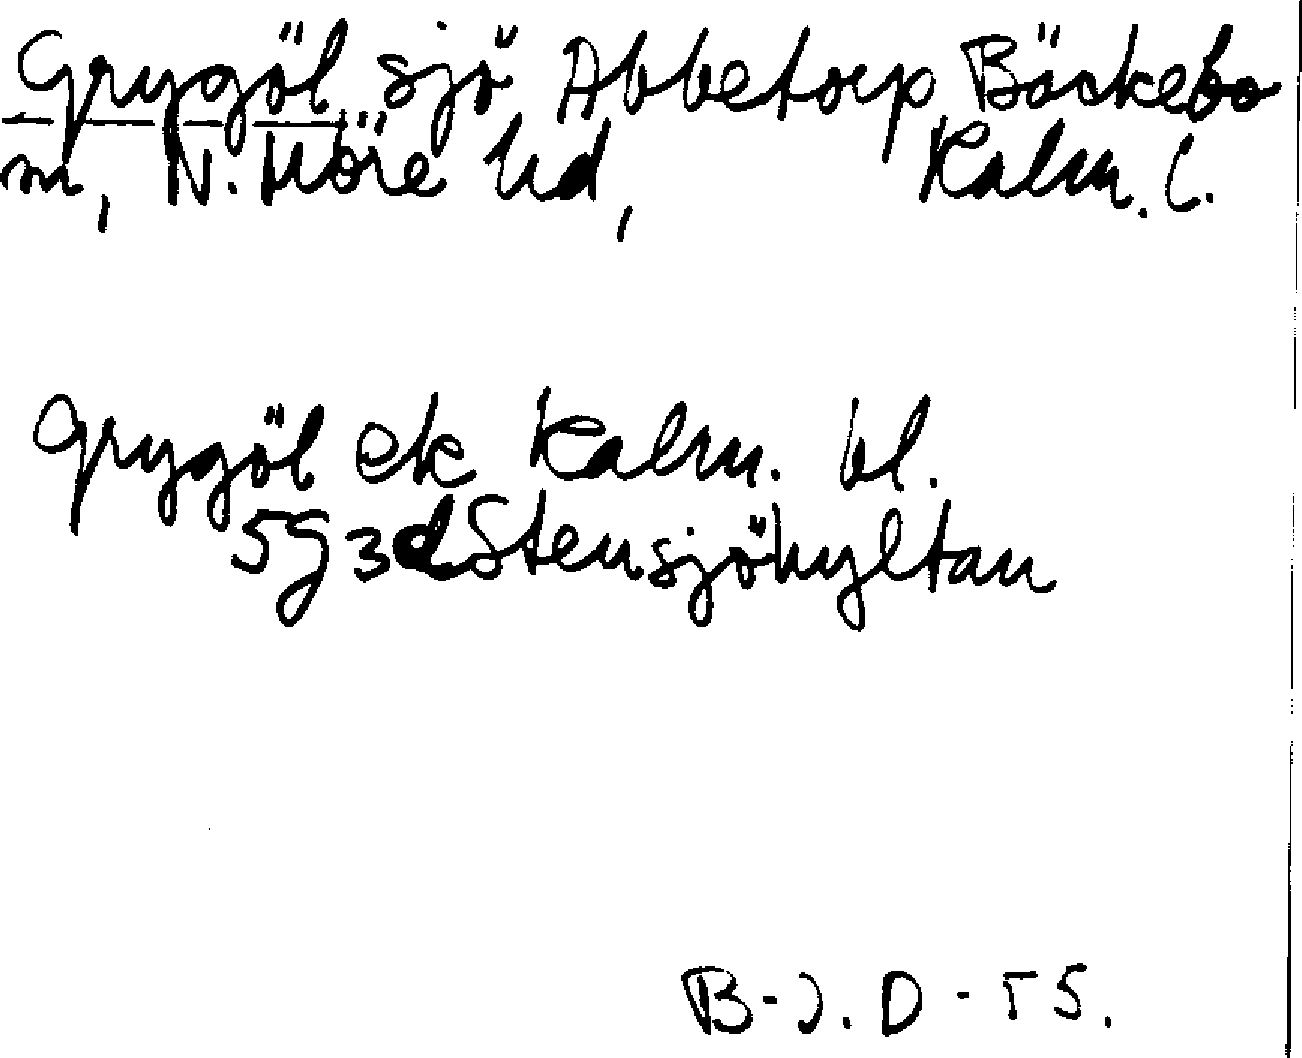 Grygöl, sjö Abbetorp Bäckebo
sn, N. Möre hd, Kalm. l.
Grygöl ek Kalm. bl.
5g3d Stensjöhyltan
B-J. D - 55.